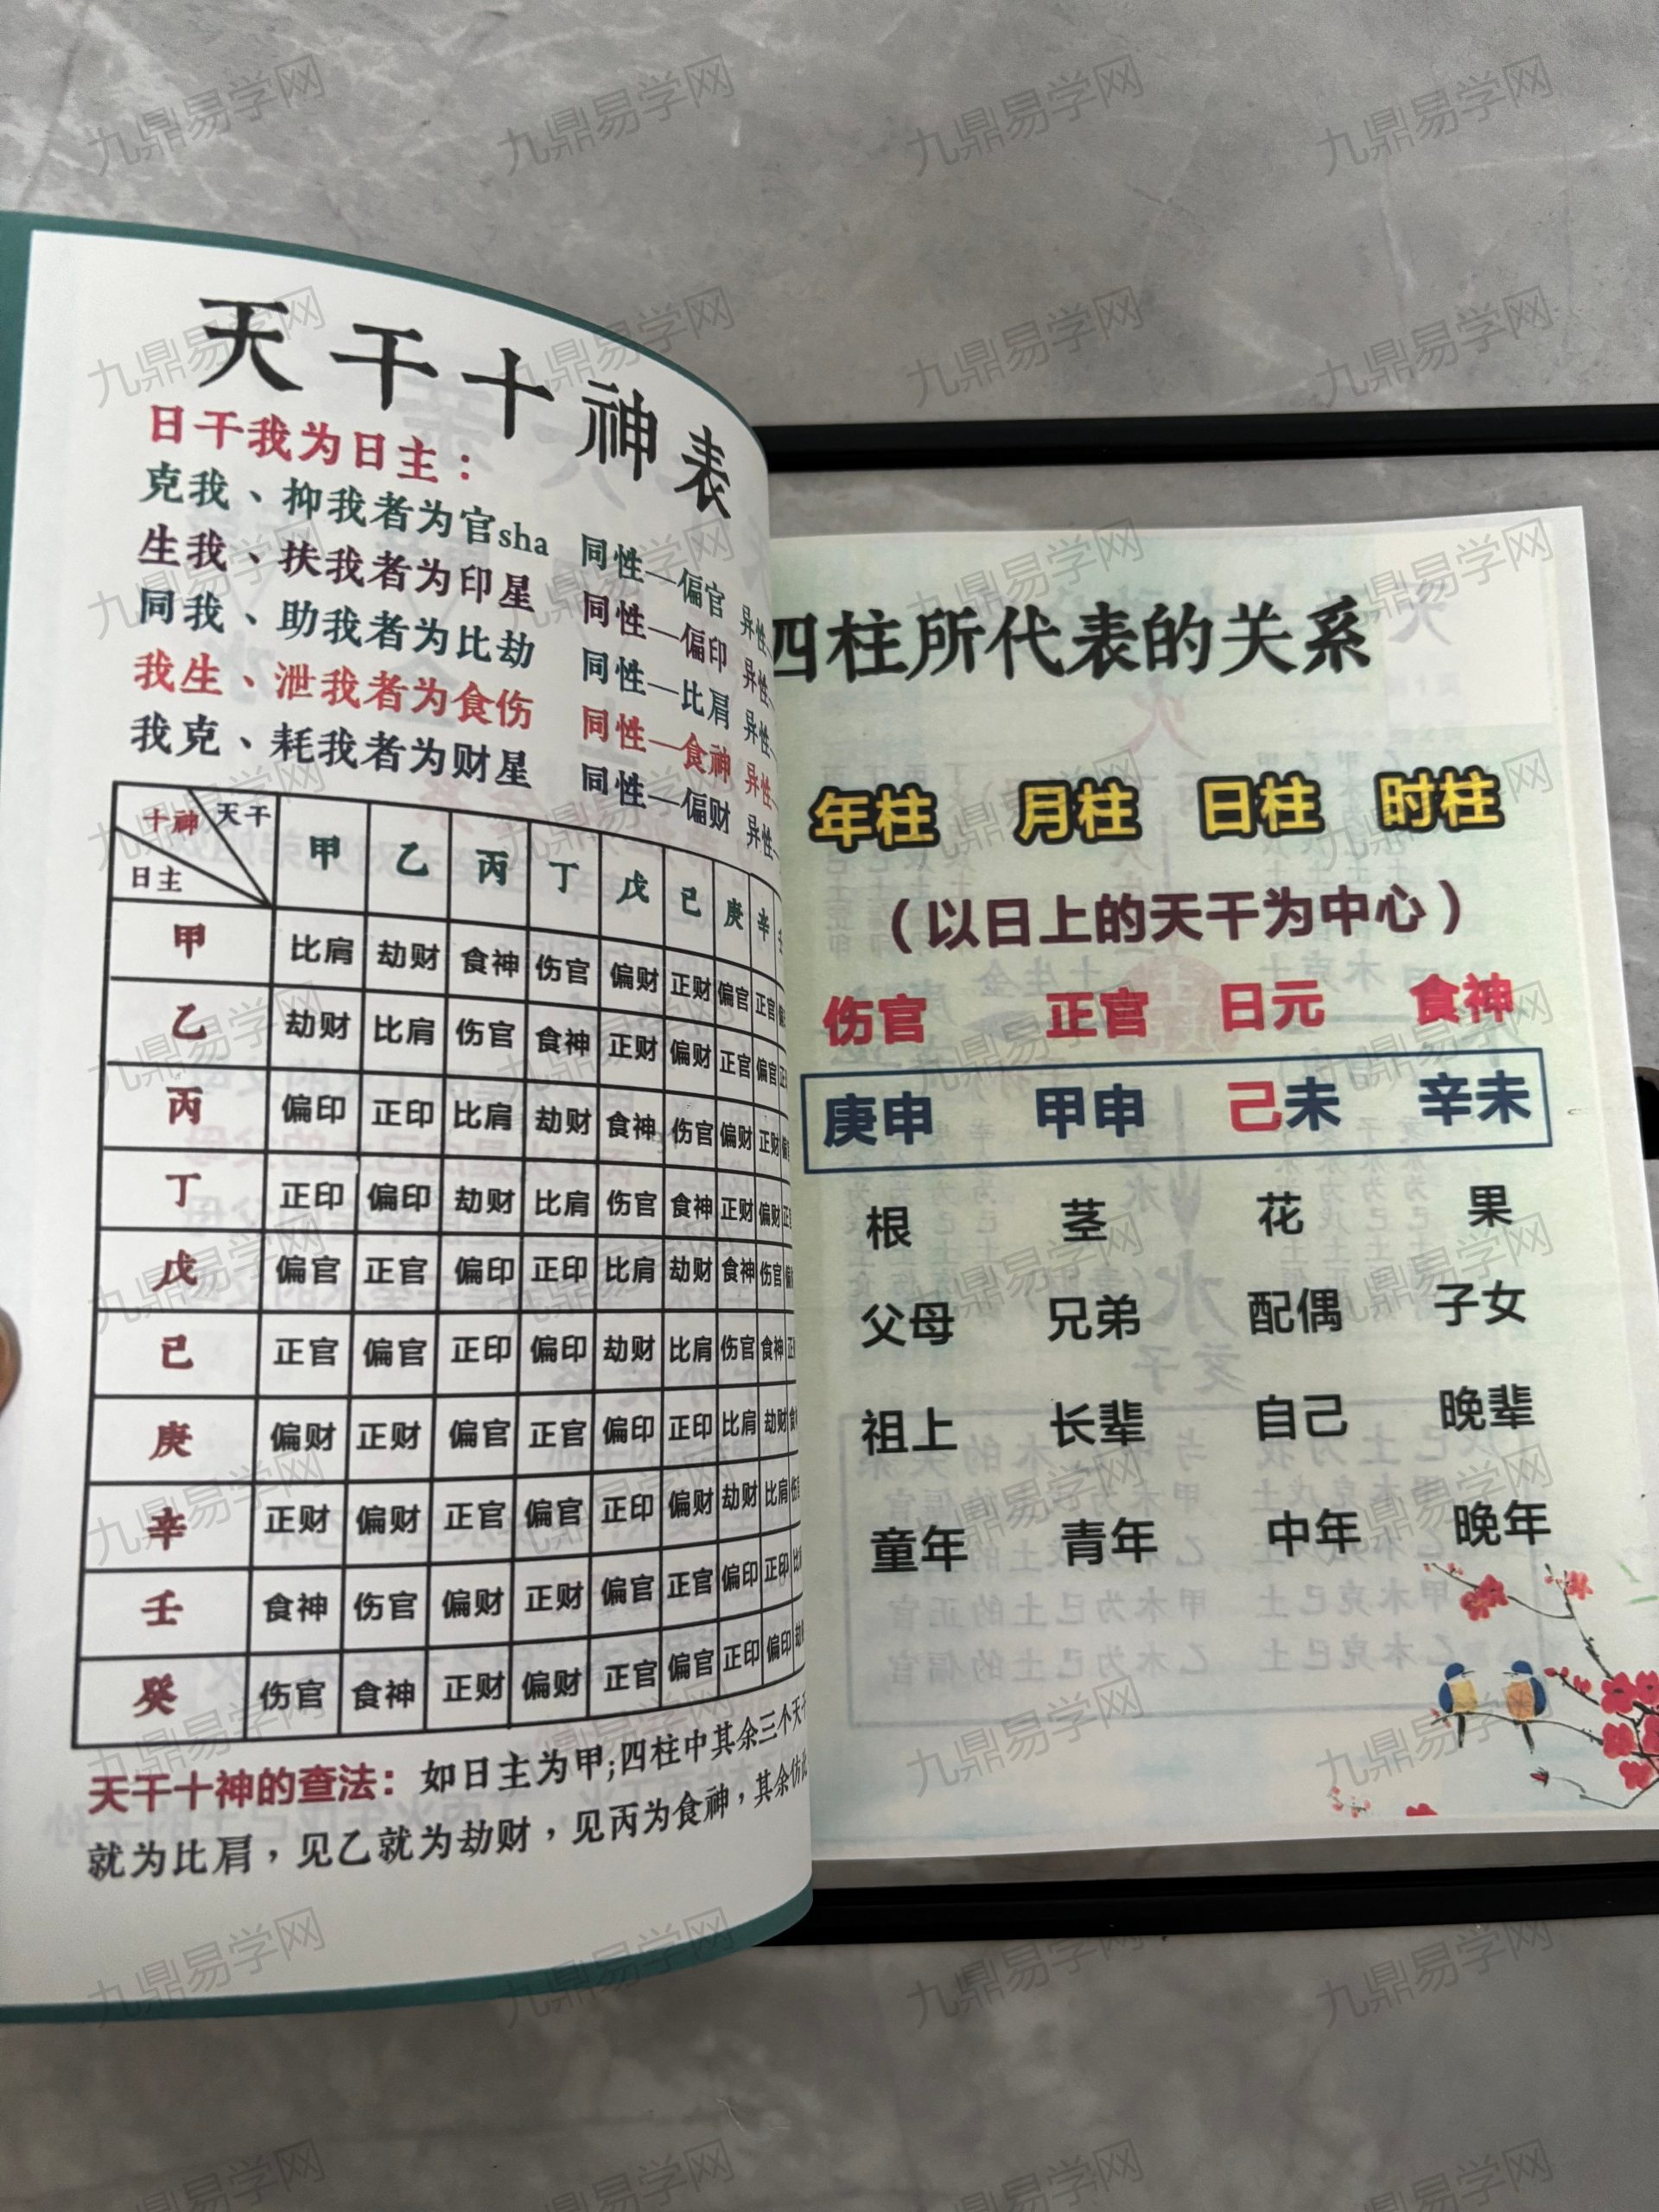 天干十神表
日干我为日主：
克我、抑我者为官sha 同性—偏官 异性
生我、扶我者为印星 同性—偏印 异性
同我、助我者为比劫 同性—比肩 异性
我生、泄我者为食伤 同性—食神 异性
我克、耗我者为财星 同性—偏财 异性
十神 天干 日主 甲 乙 丙 丁 戊 己 庚 辛
甲 比肩 劫财 食神 伤官 偏财 正财 偏官 正官
乙 劫财 比肩 伤官 食神 正财 偏财 正官 偏官
丙 偏印 正印 比肩 劫财 食神 伤官 偏财 正财
丁 正印 偏印 劫财 比肩 伤官 食神 正财 偏财
戊 偏官 正官 偏印 正印 比肩 劫财 食神 伤官
己 正官 偏官 正印 偏印 劫财 比肩 伤官 食神
庚 偏财 正财 偏官 正官 偏印 正印 比肩 劫财
辛 正财 偏财 正官 偏官 正印 偏财 劫财 比肩
壬 食神 伤官 偏财 正财 偏官 正官 偏印 正印
癸 伤官 食神 正财 偏财 正官 偏官 正印 偏印
天干十神的查法：如日主为甲;四柱中其余三个天干
就为比肩，见乙就为劫财，见丙为食神，其余仿此
四柱所代表的关系
年柱 月柱 日柱 时柱
（以日上的天干为中心）
伤官 正官 日元 食神
庚申 甲申 己未 辛未
根 茎 花 果
父母 兄弟 配偶 子女
祖上 长辈 自己 晚辈
童年 青年 中年 晚年
九鼎易学网